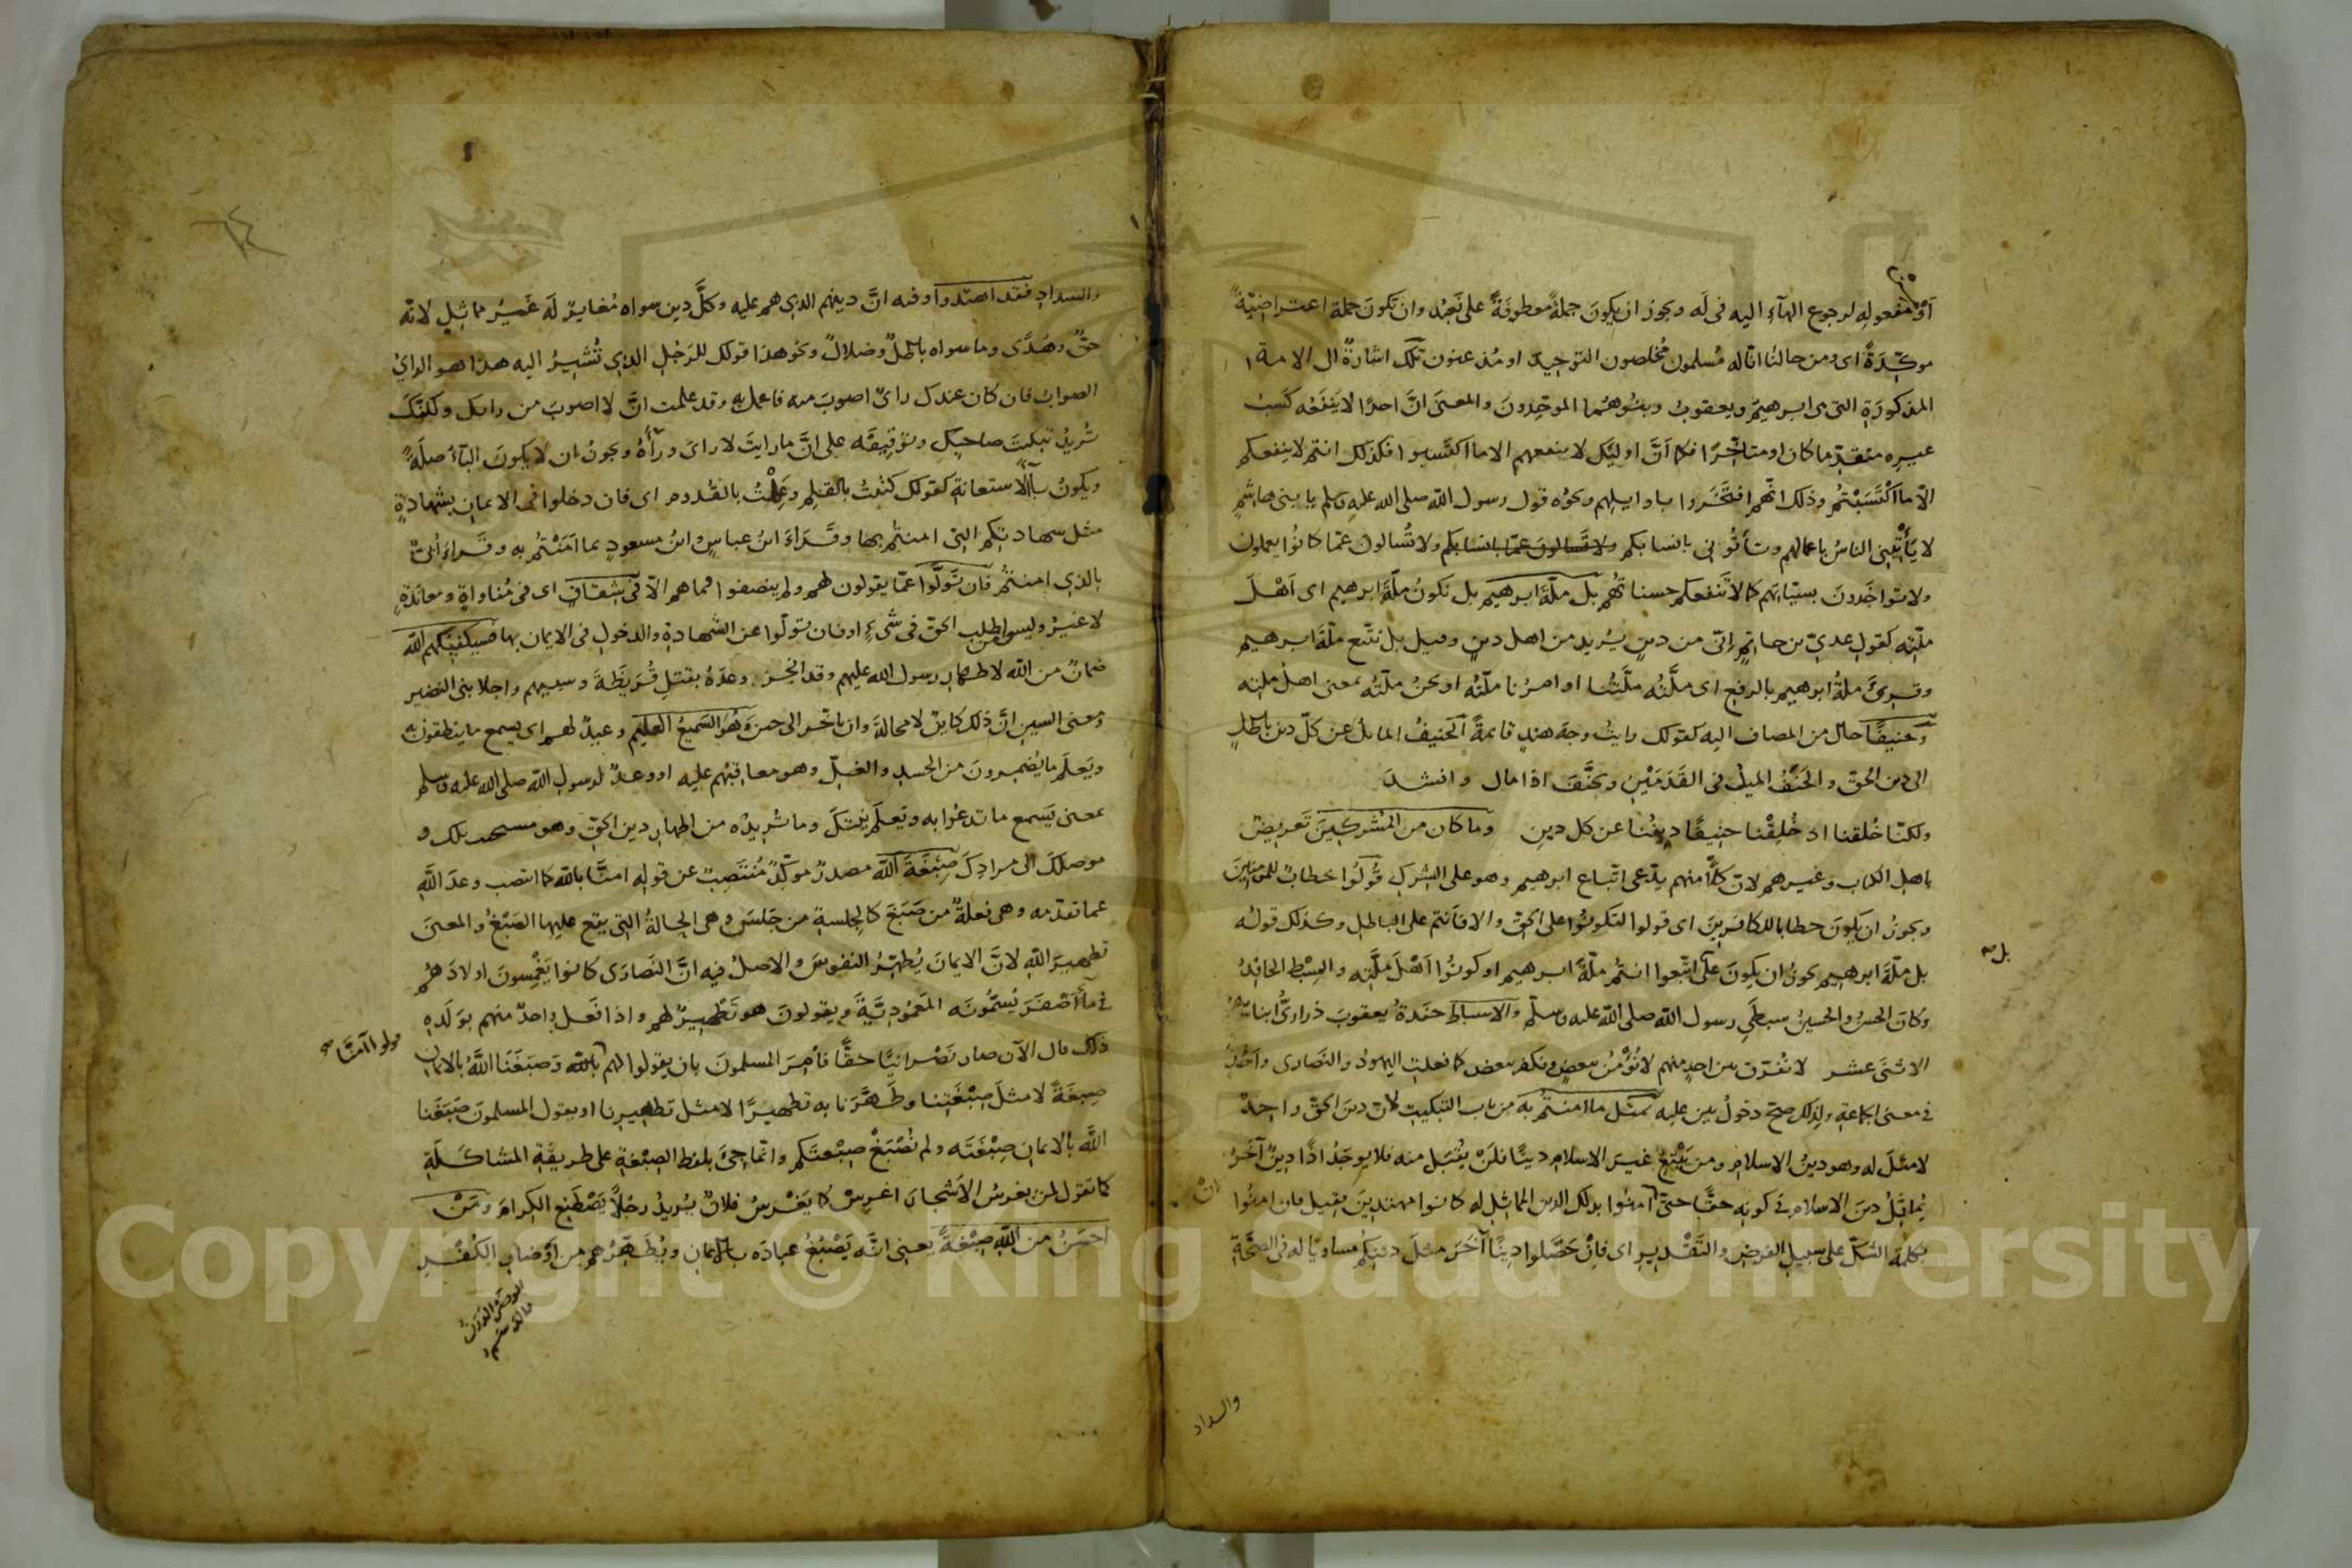 أو مفعوله لرجوع الهآءِ اليه فى لَه ويجوز ان يكونَ جملةً معطوفةً على نَعبُد وان تكونَ جملة اعتراضيّةً
موكّدةً اى ومن حالنا انّا له مُسلمون مُخلصون التوحيدَ او مُذعنون تلك اشارةٌ الى الامة
المذكورَةِ التى هى ابرهيمُ ويعقوبُ وبنُوهُما الموحِّدونَ والمعنىَ انَّ احدًا لا يَنفَعُه كَسبُ
غيرِه متقدِّما كان او متاخِّرًا فكما اَنَّ اوليك لا ينفعهم الا ما اكتَسبوا فكذلك انتم لا ينفعكم
الّا ما اكْتَسَبْتُم وذلك انّهم افتَخَروا باوايلِهم ونحوُه قول رسول اللّه صلى الله عليه وسلم يا بنى هاشمٍ
لا يَأتْيِنى الناسُ باعمالهم وتأتُونى بانسابكم ولا تُسالونَ عمّا كانُوا يعملون
ولا تواخَذونَ بسيّاتهم كما لا تَنفعكم حسناتُهم بل ملّةَ ابرهيم بل نكونُ ملّةَ ابرهيم اى اَهْلَ
ملّتِه كقولِ عدىّ بن حاتمٍ إنّى من دينٍ يُريد من اهل دينٍ وقيل بل نتّبع ملّةَ ابرهيم
وقرِئَ ملةُ ابرهيم بالرفع اى ملَّتُه ملّتُنا او امرُنا ملّتُه او نحنُ ملّتُه بمعنى اهلُ ملتِه
وحنيفًا حالٌ من المضاف اليه كقولك رايتُ وجهَ هندٍ قايمةً الحنيفُ المايلُ عن كلّ دينٍ باطلٍ
الى دين الحقّ والحَنَفُ الميلُ فى القَدَمَيْنِ وتحنَّفَ اذا مال وانشدَ
ولكنّا خُلقنا اذ خُلِقْنا حنيفًا دِينُنا عن كل دينِ وما كان من المشركينَ تَعريضٌ
باهل الكتاب وغيرهم لانّ كلًّا منهم يدّعى اتّباع ابرهيم وهو على الشركِ قُولُوا خطابٌ للمومنينَ
ويجوزُ ان يكونَ خطابا للكافرينَ اى قولوا لتكونُوا على الحقّ والا فأنتم على الباطل وكذلك قولُه
بل ملّةَ ابرهيم يجوزُ ان يكونَ على اتّبعوا انتُم ملّةَ ابرهيم او كونُوا اَهْلَ ملّتِه والسِبْط الحافِدُ
بل
وكان الحسنُ والحسينُ سبطَى رسول اللّه صلى اللّه عليه وسلّم والاسباط حفَدةُ يعقوبَ ذرارىُّ ابنايه
الاثنَى عشر لا نُفرّق بين احدٍ منهم لا نُؤمْنُ ببعضٍ ونكفر ببعض كما فعلتِ اليهودُ والنَصارى واَحَدٌ
فى معنى الجماعةِ ولذلك صحّ دخولُ بين عليه بمثل ما امنتُم بهَ من باب التبكيتِ لانّ دينَ الحقّ واحِدٌ
لا مثلَ له وهو دينُ الاسلام ومن يَبْتَغِ غيرَ الاسلامِ دينًا فلَنْ يُقبَلَ منه فلا يوجَدُ اذًا دِينٌ آخرُ
يُماثِلُ دينَ الاسلام فى كونِه حقًّا حتىّ إن امنُوا بذلك الدين المماثِل له كانوا مهتدينَ فقيل فان امنُوا
بكلمة الشكّ على سبيلِ الفرضِ والتقْديرِ اى فاِنْ حَصَّلوا دِينًا آخَرَ مثلَ دينِكُم مساويًا له فى الصحّةِ
والسداد
والسدادِ فقد اهتدوا وفيه انَّ دينهم الذى هم عليه وكلَّ دين سواه مُغايِرٌ لَه غَيرُ مماثِلٍ لانّه
حقٌّ وهُدًى وما سواه باطلٌ وضلالٌ ونحو هذا قولك للرَجُلِ الذى تُشيرُ اليه هذا هو الراىُ
الصوابُ فان كان عندك راىٌ اصوبَ منه فاعمل به وقد علمت انَّ لا اصوبَ من رايك ولكنّكَ
تُريدُ تبكيتَ صاحبِك وتوقيفَه على انَّ ما رايتَ لا راىَ ورآءَهُ ويجوزُ ان لا يكونَ البآءُ صلَةً
ويكونُ بآءَ الاستعانةِ كقولك كتبْتُ بالقلمِ وعَمِلْتُ بالقُدوم اى فان دخلوا فى الايمانِ بشهادةٍ
مثل شهادتِكم التى امنتُم بها وقَرأ ابنُ عباسٍ وابنُ مسعودٍ بما اَمنْتُم به وقَرأ اُبىّ
بالذى امنتُم فان تَولَّوا عمّا يقولون لهم ولم ينصفوا فما هم الّا فى شِقاق اى فى مُناواةٍ ومعانَدةٍ
لا غيرُ وليسوا من طلب الحقّ فى شىءٍ او فان تولّوا عن الشهادةِ والدخولِ فى الايمان بها فسيكفيكهم الله
ضمانٌ من اللّه لاظهارِ رسول الله عليهم وقد انجزَ وعدَهُ بقتلِ قُريظَةَ وسبيهم واجلا بنى النضير
ومعنى السين انَّ ذلك كاينٌ لا محالةَ وان تاخّر الى حينٍ وهُوَ السَميعُ العليم وعيدٌ لهم اى يسمع ما ينطقون به
ويَعلَم ما يُضمِرونَ من الحسدِ والغلّ وهو معاقبُهم عليه او وعدٌ لرسول اللّه صلى الله عليه وسلم
بمعنى يَسمع ما تدعُوا به ويَعلَم نيّتكَ وما تُريدُه من اظهار دين الحقّ وهو مستجيب لك و
موصلكَ الى مرادِكَ صِبْغَةَ اللّه مصدرٌ موكّدٌ مُنتَصِبٌ عن قوله امنّا باللّه كما انتصب وعدَ اللّهِ
عما تقدّمه وهى فِعلةٌ من صَبَغَ كالجِلسةِ من جَلسَ وهى الحالةُ التى يقع عليها الصَبْغُ والمعنىَ
تطهيرَ اللّهِ لانَّ الايمانَ يُطهّرُ النفوسَ والاصلُ فيه انَّ النَصارَى كانوا يَغْمِسونَ اولادَ هُم
فى مآءٍ اَصْفَرَ يُسَمُّونَه المَعمُودِيَّةَ ويقولونَ هو تَطْهيرٌ لهم واذا فَعل واحدٌ منهم بوَلَدِه
ذلك قال الآن صار نَصْرانيًّا حقًّا فأُمِرَ المسلمونَ بان يقولوا لهم باللّه وَصبَغَنَا اللّهُ بالايمان
قولوا آمنَّا
صِبغَةً لا مثلَ صِبْغَتِنا وطَهَّرَنا به تطهيرًا لا مثل تطهيرِنا او يقول المسلمونَ صَبَغَنا
اللّه بالايمانِ صِبْغَتَه ولم نُصْبَغْ صِبْغتَكم وانّما جئَ بلفظ الصِبْغةِ على طريقَةِ المشاكَلَةِ
كما تقول لمن يغرسُ الاَشجارَ اغرِسْ كما يَغْرسُ فلانٌ تُريدُ رجُلاً يَصْطَنِع الكِرامَ ومَنْ
احسَنُ من اللّهِ صِبْغةً يعنى انَّه يَصْبُغُ عبادَه بالايمانِ ويُطَهِّرُهم من اَوْضارِ الكُفْرِ